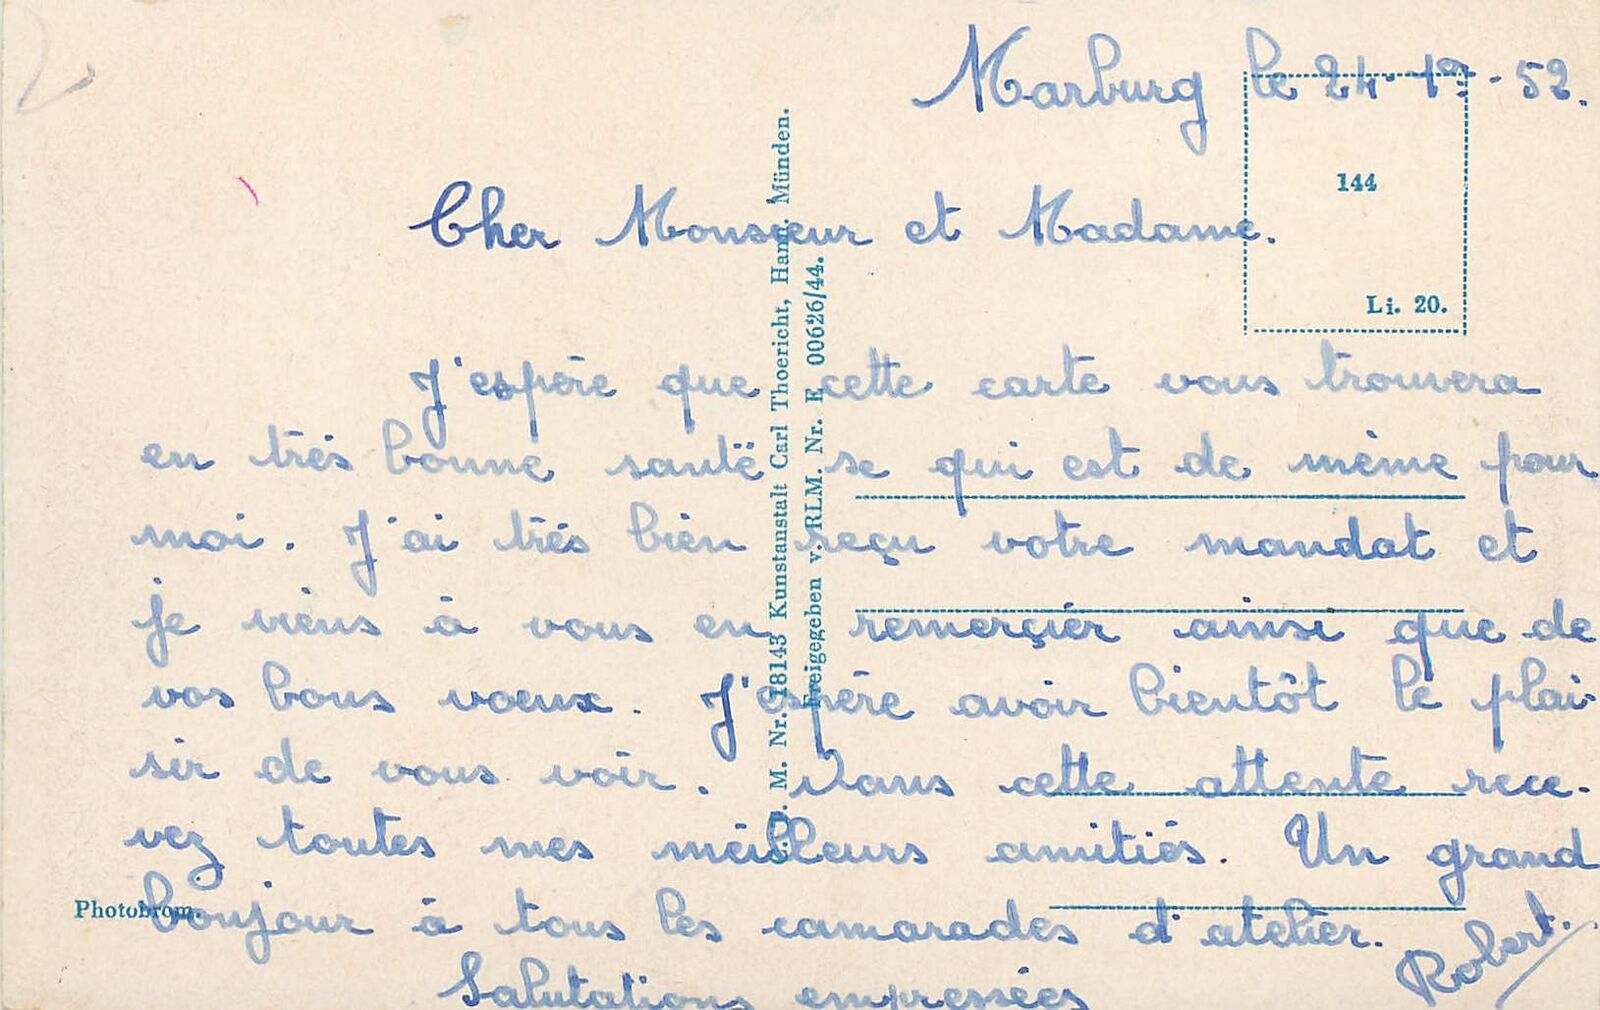 Marburg le 24-12-52.
144
Li. 20.
Cher Monsieur et Madame.
J'espère que cette carte vous trouvera
en très bonne santé se qui est de même pour
moi. J'ai très bien reçu votre mandat et
je viens à vous en remerçier ainsi que de
vos bons voeux. J'espère avoir bientôt le plai-
sir de vous voir. Dans cette attente rece-
vez toutes mes meilleurs amitiés. Un grand
bonjour à tous les camarades d'atelier.
Salutations empressées
Robert.
Photobrom.
M. Nr. 18143 Kunstanstalt Carl Thoericht, Hann. Münden.
Freigegeben v. RLM. Nr. E 00626/44.